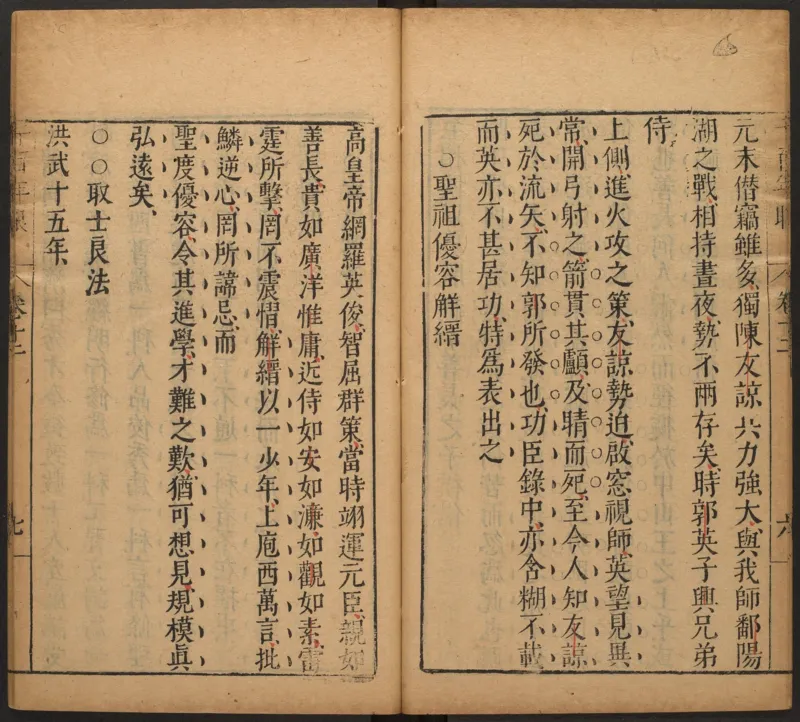 元末僣竊雖多獨陳友諒兵力強大與我師鄱陽
湖之戰相持晝夜勢不兩存矣時郭英子興兄弟
侍
上側進火攻之策友諒勢迫啟窓視師英望見異
常開弓射之箭貫其顱及睛而死至今人知友諒
死於流矢不知郭所發也功臣錄中亦含糊不載
而英亦不甚居功特爲表出之
○聖祖優容解縉
高皇帝網羅英俊智屈群策當時翊運元臣親如
善長貴如廣洋惟庸近侍如安如濂如觀如素雷
霆所擊罔不震慴解縉以一少年上庖西萬言批
鱗逆心罔所諱忌而
聖度優容令其進學才難之歎猶可想見規模眞
弘遠矣
○○取士良法
洪武十五年
卷十二
六
卷十二
七